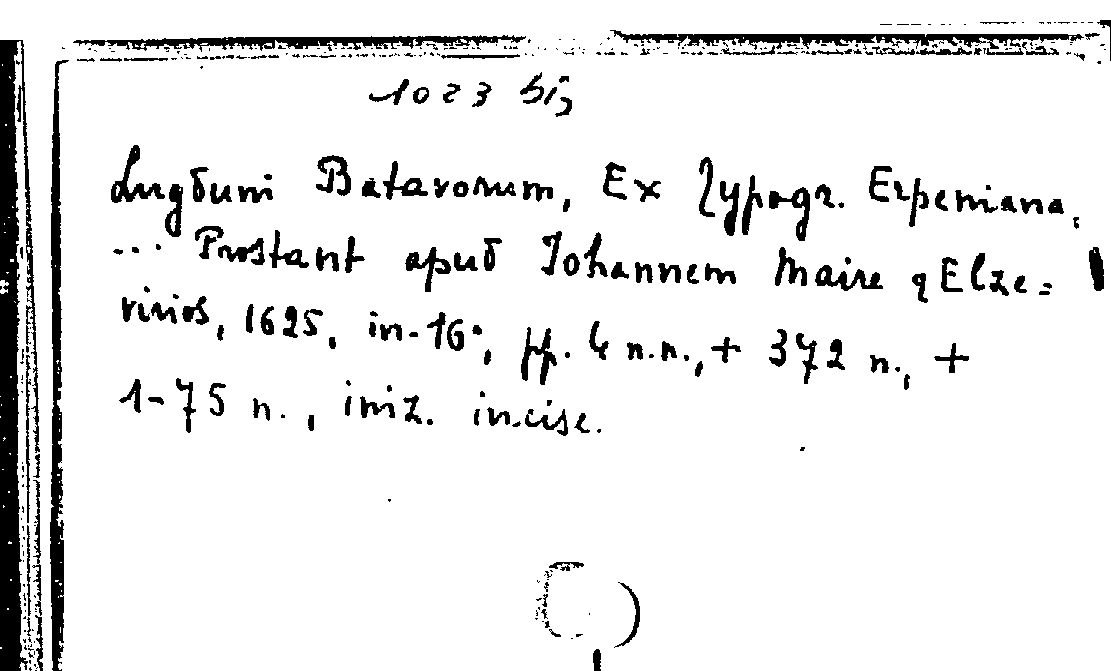 1023 bis
Lugduni Batavorum, Ex Typogr. Erpeniana,
... Prostant apud Iohannem Maire q Elze=
virios, 1625, in-16°, pp. 4 n.n., + 372 n., +
1-75 n., iniz. incise.